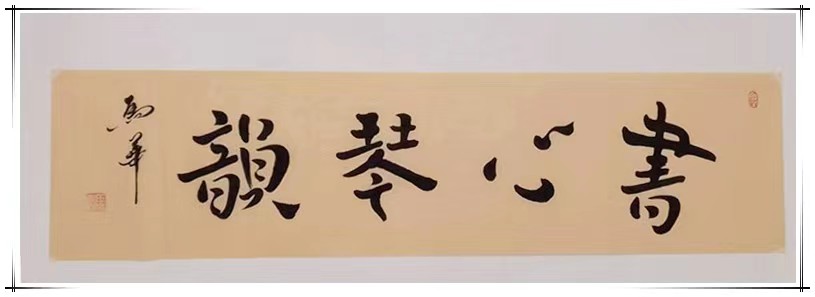 書心琴韻